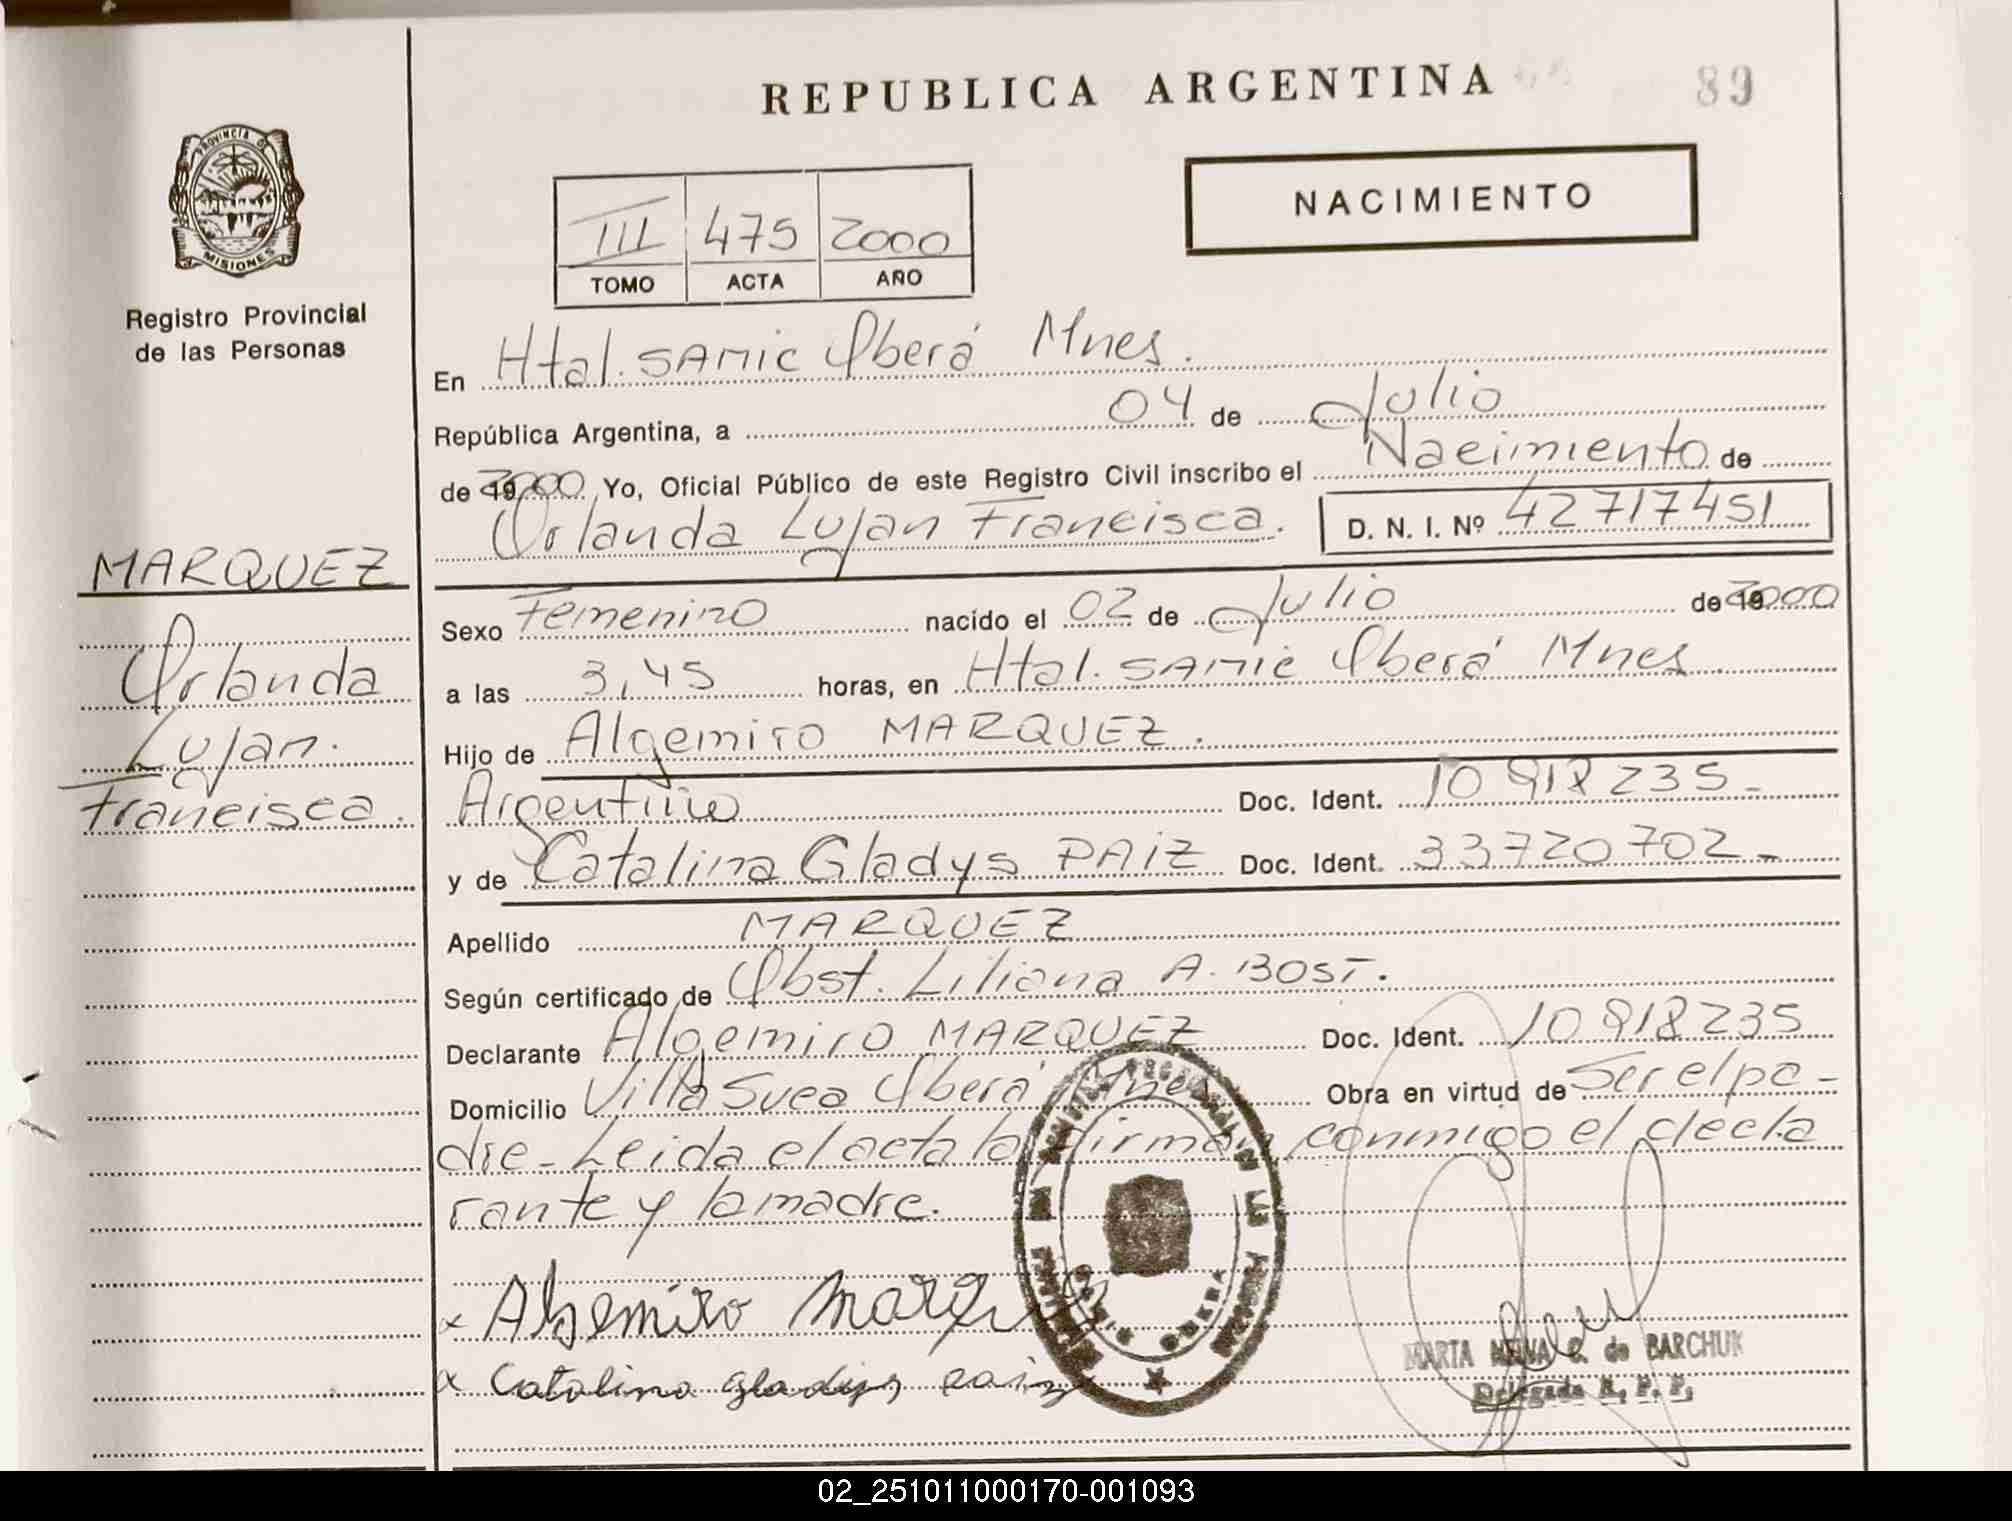 REPUBLICA ARGENTINA
89
NACIMIENTO
III 475 2000
TOMO ACTA AÑO
PROVINCIA DE
MISIONES
Registro Provincial
de las Personas
En Htal. SAMIC Oberá Mnes.
República Argentina, a 04 de Julio
de 2000 Yo, Oficial Público de este Registro Civil inscribo el Nacimiento de
Orlanda Lujan Francisca. D. N. I. Nº 42717451
MARQUEZ
Orlanda
Lujan.
Francisca.
Sexo Femenino nacido el 02 de Julio de 2000
a las 3,45 horas, en Htal. SAMIC Oberá Mnes
Hijo de Algemiro MARQUEZ.
Argentino Doc. Ident. 10 918 235-
y de Catalina Gladys PAIZ Doc. Ident. 33720702-
Apellido MARQUEZ
Según certificado de Obst. Liliana A. BOST.
Declarante Algemiro MARQUEZ Doc. Ident. 10 918235
Domicilio Villa Suea Oberá Mnes Obra en virtud de Ser el pa-
dre- Leida el acta la firman conmigo el decla
rante y la madre.
x Algemiro Marquez
x Catalina gladys paiz
OBERA
MARTA de BARCHUK
Delegada R. P. P.
02_251011000170-001093